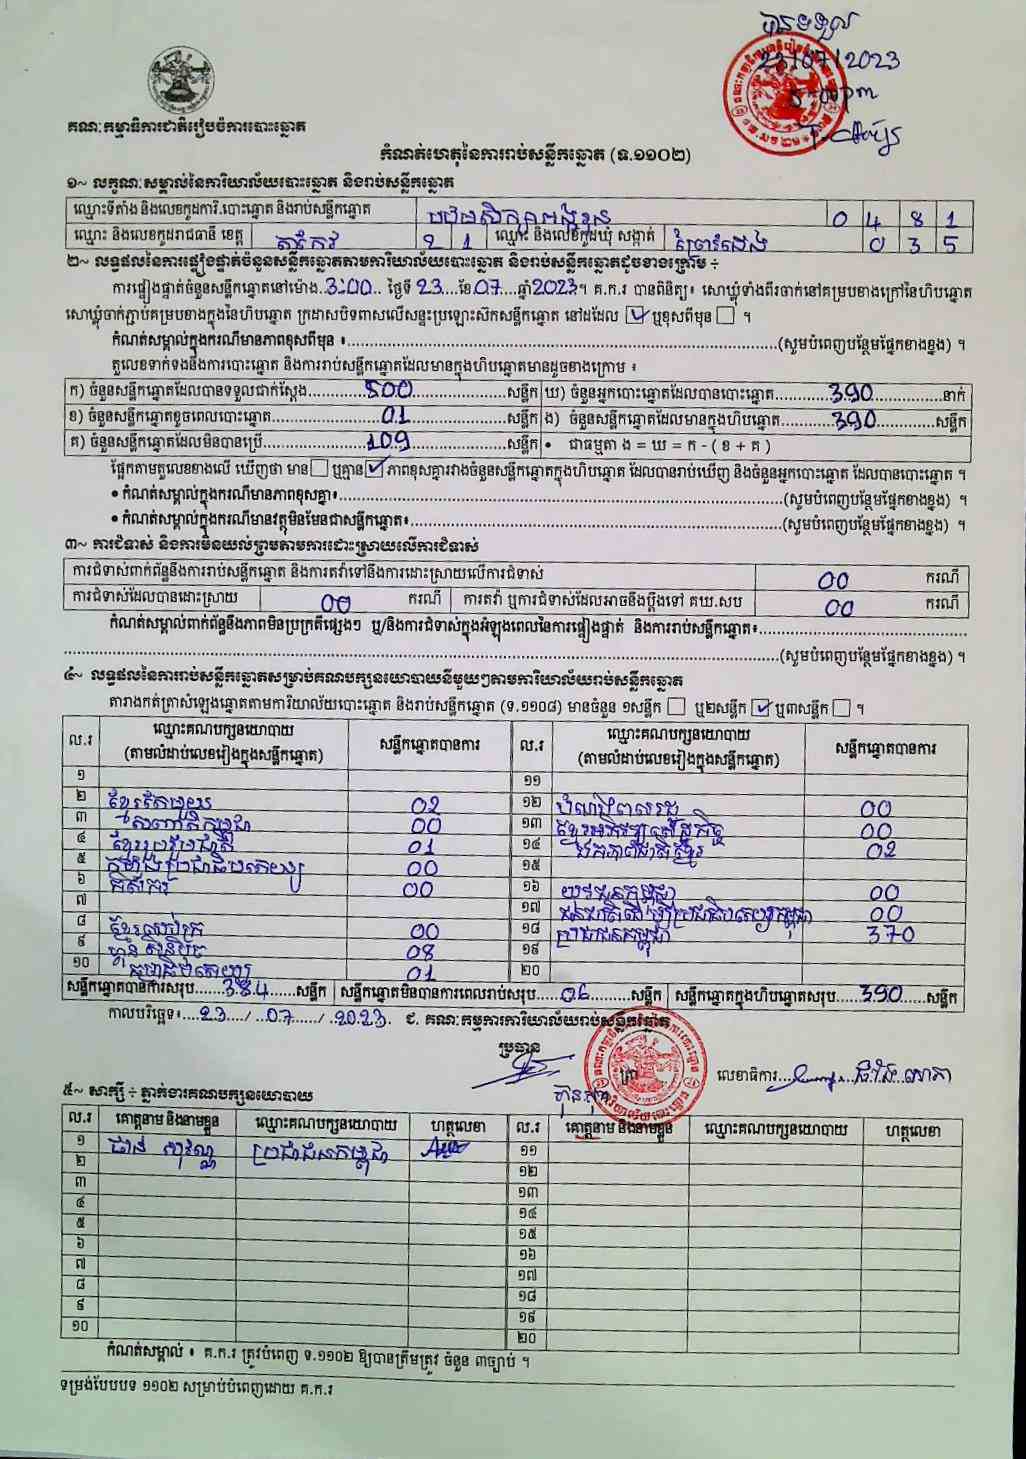 បានទទួល
23/07/2023
គណៈកម្មាធិការជាតិរៀបចំការបោះឆ្នោត
កំណត់ហេតុនៃការរាប់សន្លឹកឆ្នោត (ទ.១១០២)
១~ លក្ខណៈសម្គាល់នៃការិយាល័យបោះឆ្នោត និងរាប់សន្លឹកឆ្នោត
ឈ្មោះទីតាំង និងលេខកូដការិ.បោះឆ្នោត និងរាប់សន្លឹកឆ្នោត បឋមសិក្សា 0 4 8 1
ឈ្មោះ និងលេខកូដរាជធានី ខេត្ត តាកែវ 2 1 ឈ្មោះ និងលេខកូដឃុំ សង្កាត់ 0 3 5
២~ លទ្ធផលនៃការផ្ទៀងផ្ទាត់ចំនួនសន្លឹកឆ្នោតតាមការិយាល័យបោះឆ្នោត និងរាប់សន្លឹកឆ្នោតដូចខាងក្រោម ÷
ការផ្ទៀងផ្ទាត់ចំនួនសន្លឹកឆ្នោតនៅម៉ោង.3:00.. ថ្ងៃទី 23 ...ខែ.07....ឆ្នាំ2023។ គ.ក.រ បានពិនិត្យ៖ សោឃ្លុំទាំងពីរចាក់នៅគម្របខាងក្រៅនៃហិបឆ្នោត
សោឃ្លុំចាក់ភ្ជាប់គម្របខាងក្នុងនៃហិបឆ្នោត ក្រដាសបិទពាសលើសន្ទះប្រឡោះសិកសន្លឹកឆ្នោត នៅដដែល ☑ ឬខុសពីមុន ☐ ។
កំណត់សម្គាល់ក្នុងករណីមានភាពខុសពីមុន ៖ ..........(សូមបំពេញបន្ថែមផ្នែកខាងខ្នង) ។
តួលេខទាក់ទងនឹងការបោះឆ្នោត និងការរាប់សន្លឹកឆ្នោតដែលមានក្នុងហិបឆ្នោតមានដូចខាងក្រោម ៖
ក) ចំនួនសន្លឹកឆ្នោតដែលបានទទួលជាក់ស្តែង..........500..........សន្លឹក ឃ) ចំនួនអ្នកបោះឆ្នោតដែលបានបោះឆ្នោត..........390..........នាក់
ខ) ចំនួនសន្លឹកឆ្នោតខូចពេលបោះឆ្នោត..........01..........សន្លឹក ង) ចំនួនសន្លឹកឆ្នោតដែលមានក្នុងហិបឆ្នោត..........390..........សន្លឹក
គ) ចំនួនសន្លឹកឆ្នោតដែលមិនបានប្រើ..........109..........សន្លឹក • ជាធម្មតា ង = ឃ = ក - ( ខ + គ )
ផ្អែកតាមតួលេខខាងលើ ឃើញថា មាន ☐ ឬគ្មាន ☑ ភាពខុសគ្នារវាងចំនួនសន្លឹកឆ្នោតក្នុងហិបឆ្នោត ដែលបានរាប់ឃើញ និងចំនួនអ្នកបោះឆ្នោត ដែលបានបោះឆ្នោត ។
• កំណត់សម្គាល់ក្នុងករណីមានភាពខុសគ្នា៖..........(សូមបំពេញបន្ថែមផ្នែកខាងខ្នង) ។
• កំណត់សម្គាល់ក្នុងករណីមានវត្ថុមិនមែនជាសន្លឹកឆ្នោត៖..........(សូមបំពេញបន្ថែមផ្នែកខាងខ្នង) ។
៣~ ការជំទាស់ និងការមិនយល់ព្រមតាមការដោះស្រាយលើការជំទាស់
ការជំទាស់ពាក់ព័ន្ធនឹងការរាប់សន្លឹកឆ្នោត និងការតវ៉ាទៅនឹងការដោះស្រាយលើការជំទាស់ 00 ករណី
ការជំទាស់ដែលបានដោះស្រាយ 00 ករណី ការតវ៉ា ឬការជំទាស់ដែលអាចនឹងប្តឹងទៅ គឃ.សប 00 ករណី
កំណត់សម្គាល់ពាក់ព័ន្ធនឹងភាពមិនប្រក្រតីផ្សេងៗ ឬ/និងការជំទាស់ក្នុងអំឡុងពេលនៃការផ្ទៀងផ្ទាត់ និងការរាប់សន្លឹកឆ្នោត៖..........
..........(សូមបំពេញបន្ថែមផ្នែកខាងខ្នង) ។
៤~ លទ្ធផលនៃការរាប់សន្លឹកឆ្នោតសម្រាប់គណបក្សនយោបាយនីមួយៗតាមការិយាល័យរាប់សន្លឹកឆ្នោត
តារាងកត់ត្រាសំឡេងឆ្នោតតាមការិយាល័យបោះឆ្នោត និងរាប់សន្លឹកឆ្នោត (ទ.១១០៨) មានចំនួន ១សន្លឹក ☐ ឬ២សន្លឹក ☑ ឬ៣សន្លឹក ☐ ។
ល.រ ឈ្មោះគណបក្សនយោបាយ (តាមលំដាប់លេខរៀងក្នុងសន្លឹកឆ្នោត) សន្លឹកឆ្នោតបានការ ល.រ ឈ្មោះគណបក្សនយោបាយ (តាមលំដាប់លេខរៀងក្នុងសន្លឹកឆ្នោត) សន្លឹកឆ្នោតបានការ
១ ១១
២ ខ្មែរតែមួយ 02 ១២ 00
៣ 00 ១៣ ខ្មែរអភិវឌ្ឍន៍សេដ្ឋកិច្ច 00
៤ ខ្មែររួបរួមជាតិ 01 ១៤ ឯកភាពជាតិខ្មែរ 02
៥ កម្លាំងប្រជាធិបតេយ្យ 00 ១៥
៦ កសិករ 00 ១៦ យុវជនកម្ពុជា 00
៧ ១៧ ជនជាតិដើមប្រជាធិបតេយ្យកម្ពុជា 00
៨ ខ្មែរឈប់ក្រ 00 ១៨ ប្រជាជនកម្ពុជា 370
៩ ហ្វ៊ុនស៊ិនប៉ិច 08 ១៩
១០ 01 ២០
សន្លឹកឆ្នោតបានការសរុប.......384......សន្លឹក សន្លឹកឆ្នោតមិនបានការពេលរាប់សរុប.....06.........សន្លឹក សន្លឹកឆ្នោតក្នុងហិបឆ្នោតសរុប.....390......សន្លឹក
កាលបរិច្ឆេទ៖....23..../...07....../...2023. ៩. គណៈកម្មការការិយាល័យរាប់សន្លឹកឆ្នោត
ប្រធាន
ត្រា
លេខាធិការ
៥~ សាក្សី ÷ ភ្នាក់ងារគណបក្សនយោបាយ
ល.រ គោត្តនាម និងនាមខ្លួន ឈ្មោះគណបក្សនយោបាយ ហត្ថលេខា ល.រ គោត្តនាម និងនាមខ្លួន ឈ្មោះគណបក្សនយោបាយ ហត្ថលេខា
១ សុវណ្ណ ប្រជាជនកម្ពុជា ១១
២ ១២
៣ ១៣
៤ ១៤
៥ ១៥
៦ ១៦
៧ ១៧
៨ ១៨
៩ ១៩
១០ ២០
កំណត់សម្គាល់ ៖ គ.ក.រ ត្រូវបំពេញ ទ.១១០២ ឱ្យបានត្រឹមត្រូវ ចំនួន ៣ច្បាប់ ។
ទម្រង់បែបបទ ១១០២ សម្រាប់បំពេញដោយ គ.ក.រ